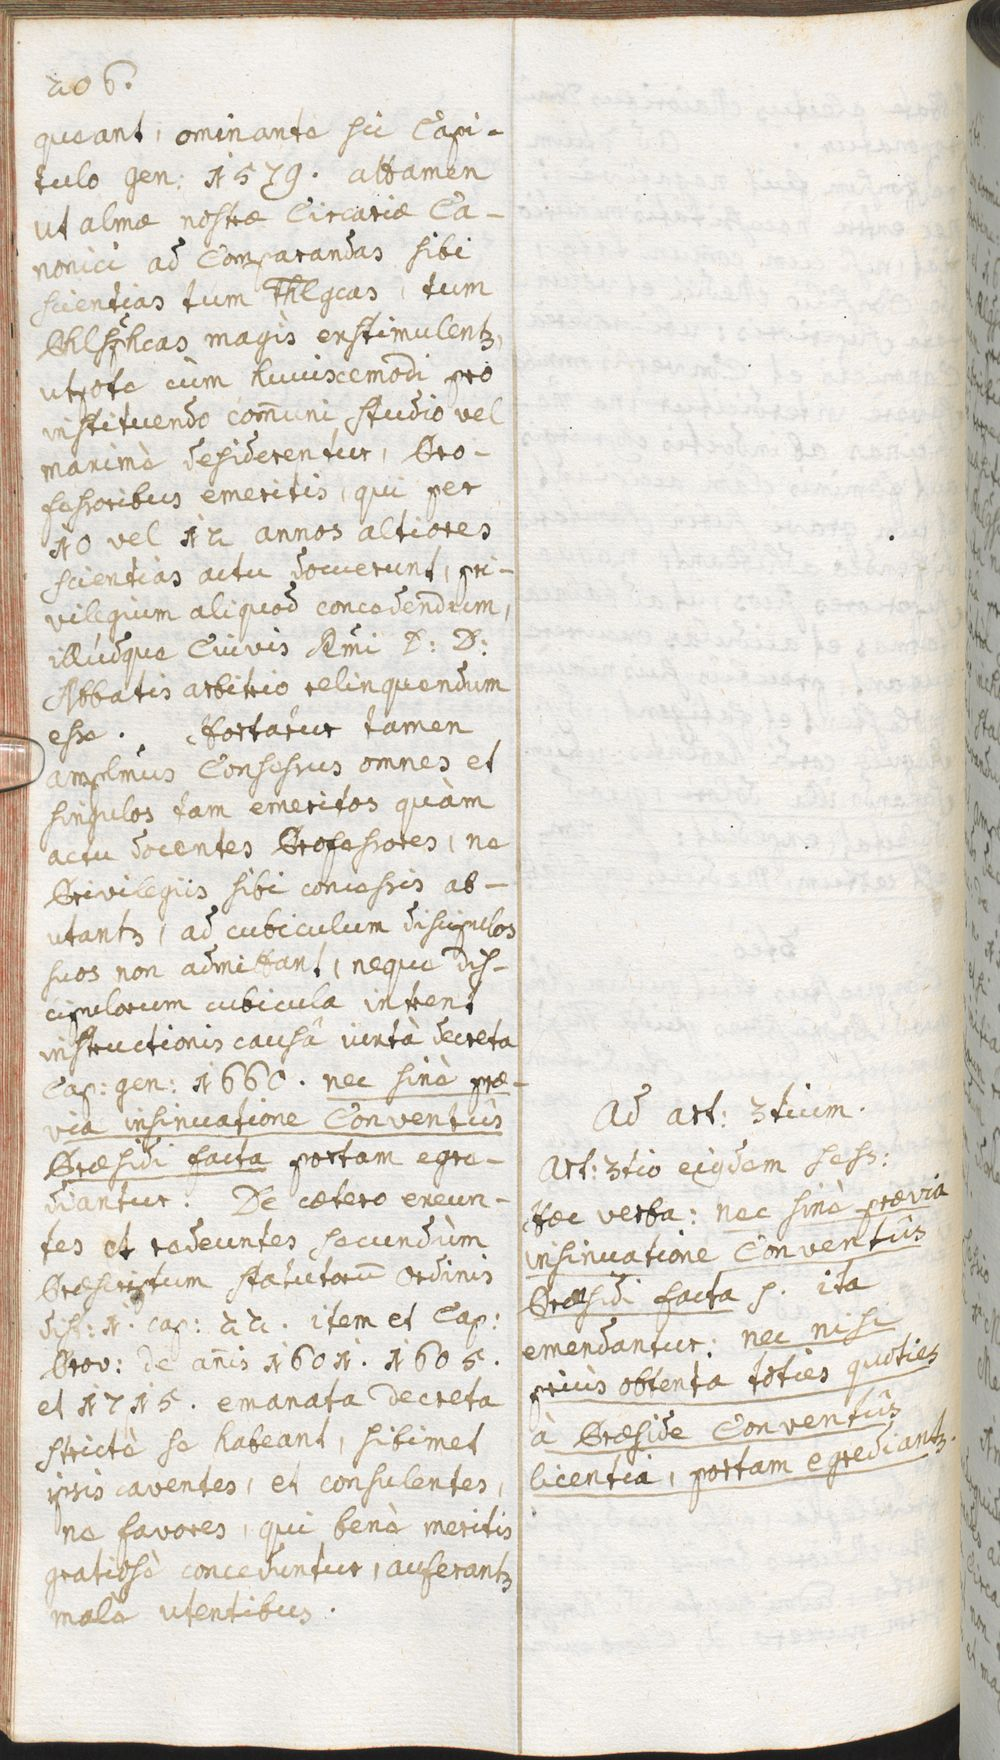 206.
queant, ominante sic Capi-
tulo gen: 1579. attamen
ut almæ nostræ Circariæ Ca-
nonici ad Comparandas sibi
scientias tum Thlgcas, tum
Phlsphcas magìs exstimulentꝫ,
utpote cùm huiuscemodi pro
instituendo com̄uni studio vel
maximè desiderentur, Pro-
fessoribus emeritis, qui per
10 vel 12 annos altiores
scientias actu docuerunt, pri-
vilegium aliquod concedendum,
illúdque Cuivis Rm̄i D: D:
Abbatis arbitrio relinquendum
esse. Hortatur tamen
amplmus Consessus omnes et
singulos tam emeritos quàm
actu docentes Professores, ne
Privilegiis sibi concessis ab-
utantꝫ, ad cubiculum discipulos
suos non admittant, neque dis-
cipulorum cubicula intrent
instructionis causâ iuxtà decreta
Cap: gen: 1660. nec sinè præ-
via insinuatione Conventûs
Præsidi facta portam egre-
diantur. De cætero exeun-
tes et redeuntes secundùm
Præscriptum statutorū Ordinis
dist: 1. cap: 22. item et Cap:
Prov: de an̄is 1601. 1605.
et 1715. emanata decreta
strictè se habeant, sibimet
ipsis caventes, et consulentes,
ne favores, qui benè meritis
gratiosè conceduntur, auferantꝫ
malè utentibus.
Ad art: 3tium.
Art: 3tio eiusdem sess:
Hæc verba: nec sinè prævia
insinuatione Conventûs
Præsidi facta p. ita
emendantur: nec nisi
priùs obtenta toties quoties
à Præside Conventûs
licentia, portam egrediantꝫ.